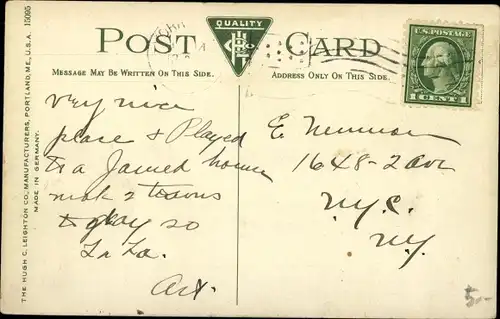 POST CARD
QUALITY
MESSAGE MAY BE WRITTEN ON THIS SIDE.
ADDRESS ONLY ON THIS SIDE.
U.S. POSTAGE
1 CENT 1
THE HUGH C. LEIGHTON CO., MANUFACTURERS, PORTLAND, ME., U.S.A.
MADE IN GERMANY.
15095
very nice
place & Played
to a Jamed house
mak 2 towns
to play so
La La.
Art.
E.
1648-2 ave
N.Y.C.
N.Y.
5.-